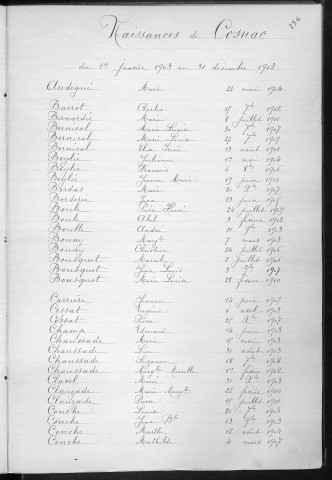 236
Naissances de Cosnac
du 1er janvier 1903 au 31 décembre 1912.
Audeguié Marie 22 mai 1904
Barrot Charles 15 7bre 1912
Bernardie Marie juillet 1911
Bernical Marie Louise 30 7bre 1907
Bernical Marie Louise 27 1909
Bernical 13 août 1911
Beylie Julienne 1er mai 1904
Beylie François 6 8bre 1905
Beylie Jeanne Marie 19 juin 1911
Bordas Marie 20 9bre 1907
Borderie Jean 23 juin 1905
Bouch Henri 24 juillet 1909
Bouch Abel 3 février 1912
Bouille André 11 9bre 1903
Bouny Marg. 7 mars 1903
Bouny Christine 24 juillet 1905
Bousquet Marcel juillet 1905
Bousquet Jean Louis 3 9bre 1907
Bousquet Marie Louise 28 février 1910
Carrière Jeanne 14 juin 1905
Cessat 1 avril 1905
Cessat 25 Xbre 1907
Champ Edouard 14 juin 1903
Chaussade Marie 15 mai 1903
Chaussade 31 août 1903
Chaussade Suzanne 18 7bre 1908
Chaussade Marg. 1er février 1912
Clavel Marie 31 Xbre 1903
Clauzade Marie Marg. 22 février 1910
Clauzade Pierre 15 juillet 1911
Conche Louise 20 7bre 1903
Conche Jean Bte 13 9bre 1903
Conche Marthe 12 août 1904
Conche Mathilde 4 mars 1907